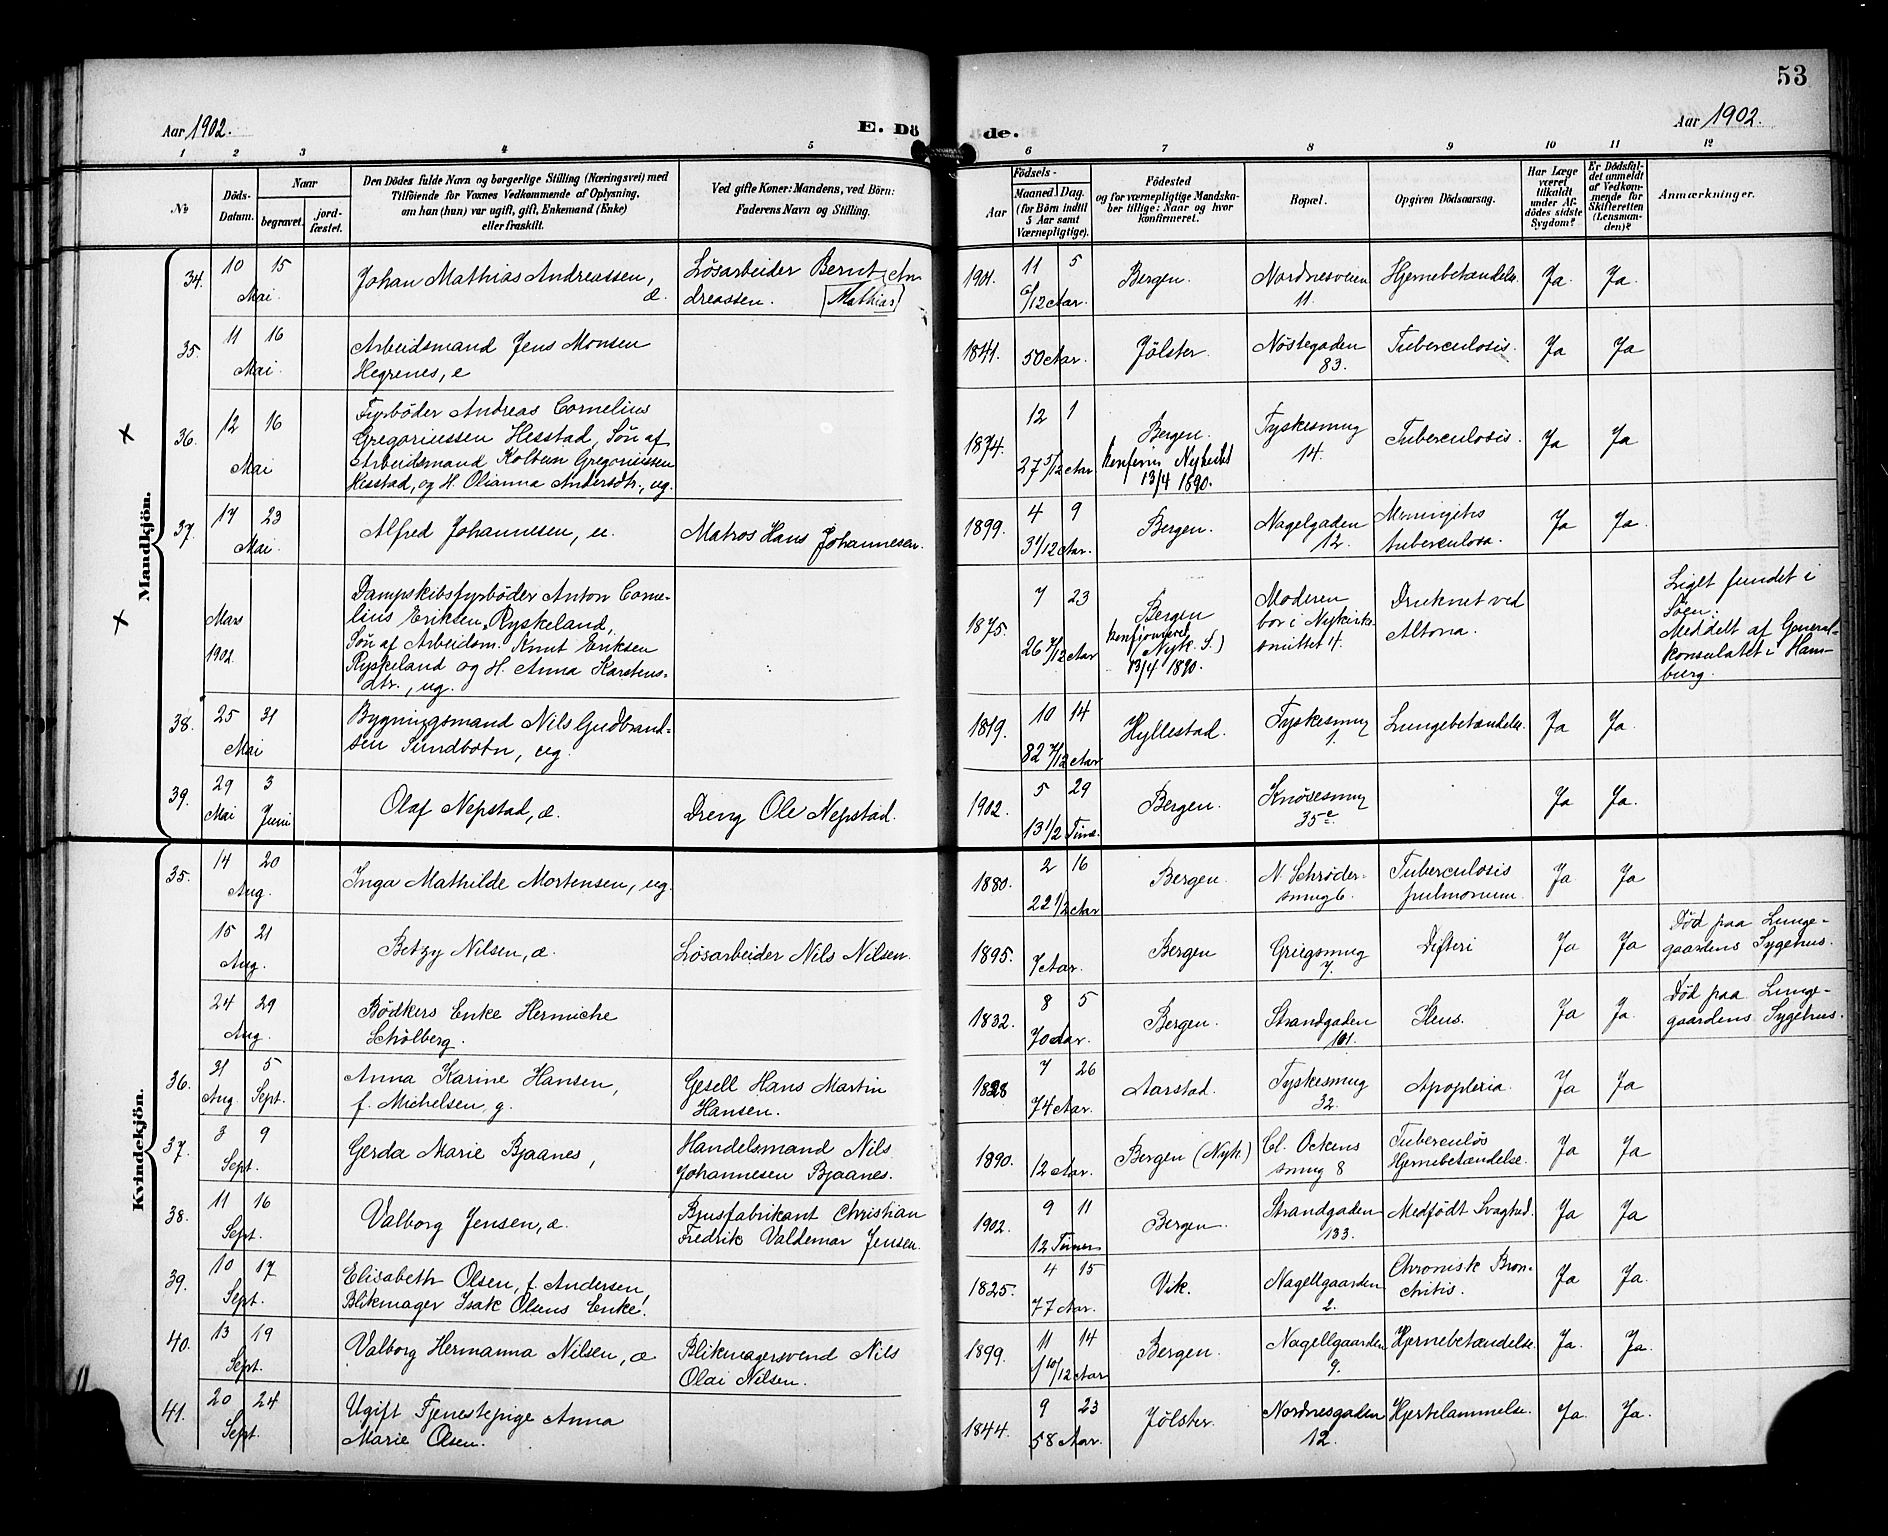 53
Aar 1902.
E. Dö
de.
Aar 1902.
1 2 3 4 5 6 7 8 9 10 11 12
№
Döds-
Datum.
Naar
begravet.
jord-
fæstet.
Den Dödes fulde Navn og borgerlige Stilling (Næringsvei) med
Tilföiende for Voxnes Vedkommende af Oplysning,
om han (hun) var ugift, gift, Enkemand (Enke)
eller fraskilt.
Ved gifte Koner: Mandens, ved Börn:
Faderens Navn og Stilling.
Födsels-
Aar
Maaned.
Dag.
(for Börn indtil
5 Aar samt
Værnepligtige).
Födested
og for værnepligtige Mandska-
ber tillige: Naar og hvor
konfirmeret.
Bopæl.
Opgiven Dödsaarsag.
Har Læge
været
tilkaldt
under Af-
dödes sidste
Sygdom?
Er Dödsfal-
det anmeldt
af Vedkom-
mende for
Skifteretten
(Lensman-
den)?
Anmærkninger.
Mandkjön.
34. 10 15 Mai
Johan Mathias Andreassen,
æ.
Lösarbeider Bernt An
dreassen. Mathias
1901. 11 5
6/12 Aar.
Bergen.
Nordnesveien
11.
Hjernebetændelse.
Ja. Ja.
35. 11 16 Mai.
Arbeidsmand Jens Monsen
Hegrenes, e
1841.
50 Aar.
Jölster.
Nöstegaden
83.
Tuberculosis.
Ja Ja
x
36. 12 16 Mai
Fyrböder Andreas Cornelius
Gregoriussen Hesstad, Sön af
Arbeidsmand Kolbein Gregoriussen
Hesstad, og H. Olianna Andersdtr., ug.
1874. 12 1
27 5/12 Aar
Bergen.
konfirm. Nykirket
13/4 1890.
Tyskesmug
14.
Tuberculosis.
Ja Ja
37. 17 23 Mai
Alfred Johannesen, æ.
Matros Hans Johannesen.
1899. 4 9
3 1/12 Aar.
Bergen.
Nagelgaden
12.
Meningitis
tuberculosa.
Ja Ja.
x
Mars
1902.
Dampskibsfyrböder Anton Corne-
lius Eriksen Ryskeland,
Sön af Arbeidsm. Knut Eriksen
Ryskeland og H. Anna Karstens-
dtr., ug.
1875. 7 23
26 7/12 Aar
Bergen
konfirmeret
(Nyk. S.)
13/4 1890.
Moderen
bor i Nykirke-
smuttet 4.
Druknet ved
Altona.
Liget fundet i
Söen.
Meddelt af General-
konsulatet i Ham-
burg.
38. 25 31 Mai
Bygningsmand Nils Gudbrand-
sen Sundbotn, ug.
1819. 10 14
82 7/12 Aar
Hyllestad.
Tyskesmug
1.
Lungebetændelse.
Ja Ja.
39. 29 3
Mai Juni
Olaf Nepstad, æ.
Dreng Ole Nepstad.
1902. 5 29
13 1/2 Time.
Bergen.
Knösesmug
35 e
Ja Ja.
Kvindekjön.
35. 14 20 Aug.
Inga Mathilde Mortensen, ug.
1880. 2 16
22 1/2 Aar
Bergen.
N. Schröder-
smug 6.
Tuberculosis
pulmonum.
Ja Ja
15 21 Aug.
Betzy Nilsen, æ.
Lösarbeider Nils Nilsen.
1895.
7 Aar.
Bergen
Griegsmug
7.
Difteri
Ja Ja
Död paa Lunge-
gaardens Sygehus.
24 29 Aug.
Bödkers Enke Hermiche
Schölberg.
1832. 8 5
70 Aar.
Bergen.
Strandgaden
101.
Ileus.
Ja Ja.
Död paa Lunge-
gaardens Sygehus.
36. 31 5
Aug. Sept.
Anna Karine Hansen,
f. Michelsen, g.
Gesell Hans Martin
Hansen.
1828 7 26
74 Aar.
Aarstad.
Tyskesmug
32.
Apoplexia.
Ja Ja
37. 3 9 Sept.
Gerda Marie Bjaanes,
Handelsmand Nils
Johannesen Bjaanes.
1890.
12 Aar.
Bergen (Nyk.)
Cl. Ockens
smug 8
Tuberculös
Hjernebetændelse.
Ja Ja
38. 11 16 Sept.
Valborg Jensen, æ.
Brusfabrikant Christian
Fredrik Valdemar Jensen.
1902. 9 11
12 Timer
Bergen.
Strandgaden
133.
Medfödt Svaghed.
Ja Ja
39. 10 17 Sept.
Elisabeth Olsen, f. Andersen
Blikmager Isak Olsens Enke.
1825. 4 15
77 Aar.
Vik.
Nagellgaarden
2.
Chronisk Bron-
chitis.
Ja Ja.
40. 13 19 Sept.
Valborg Hermanna Nilsen, æ
Blikmagersvend Nils
Olai Nilsen.
1899. 11 14
10/12 Aar
Bergen.
Nagellgaarden
9.
Hjernebetændelse.
Ja. Ja.
41. 20 24 Sept.
Ugift Tjenestepige Anna
Marie Olsen.
1844. 9 23
58 Aar.
Jölster.
Nordnesgaden
12.
Hjertelammelse.
Ja. Ja.